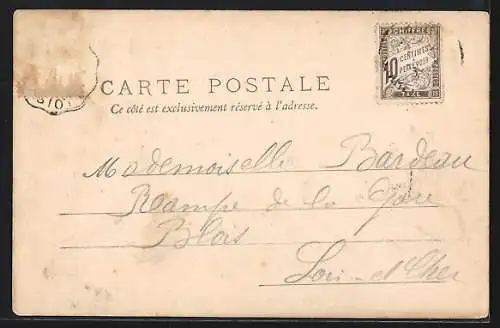 CARTE POSTALE
Ce côté est exclusivement réservé à l'adresse.
CHIFFRE
10
CENTIMES
A
PERCEVOIR
TAXE
Mademoiselle Bardeau
Rampe de la Gare
Blois
Loir-et-Cher